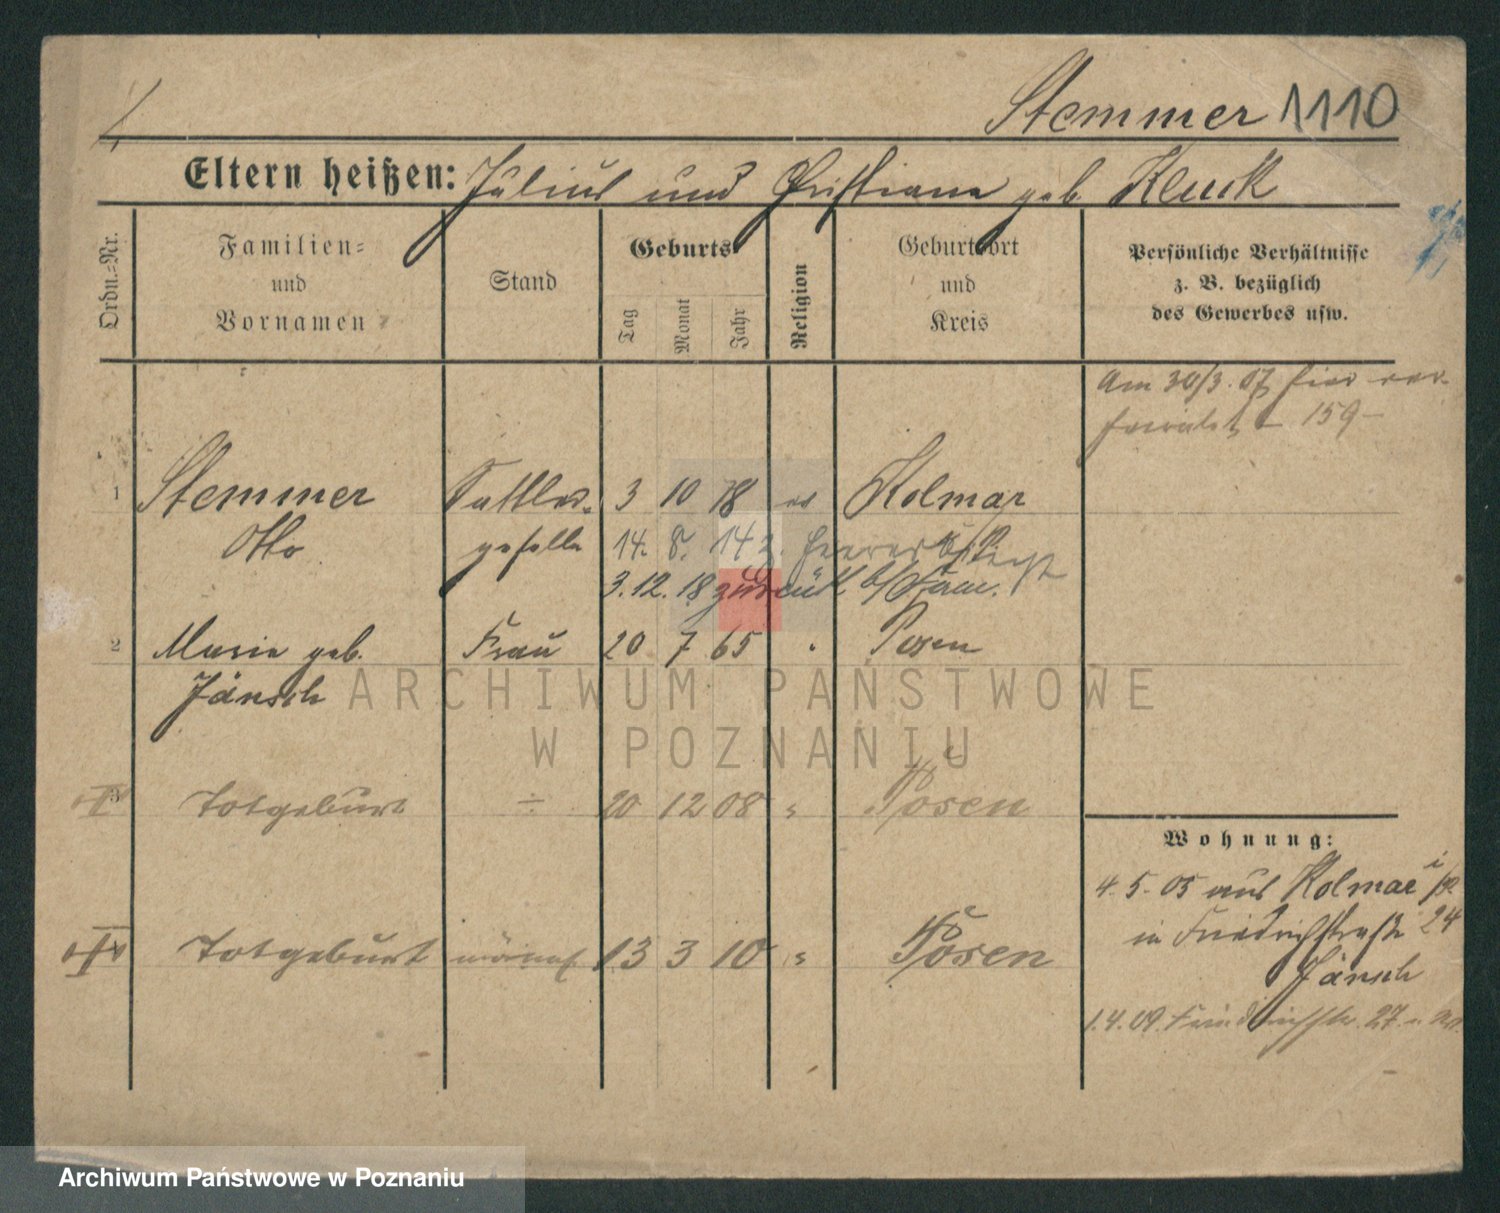 Stemmer 1110
Eltern heißen: Julius und Christiana geb. Kluck
Ordn.=Nr.
Familien=
und
Vornamen
Stand
Geburts
Tag
Monat
Jahr
Religion
Geburtsort
und
Kreis
Persönliche Verhältnisse
z. B. bezüglich
des Gewerbes usw.
Am 30/3. 07 hier ver-
heiratet, - 159-
1 Stemmer Sattler- 3 10 78 ev Kolmar
Otto geselle 14. 8. 14 z.
3.12.18 zurück b/ Fam.
2 Marie geb. Frau 20 7 65 " Posen
Jänsch
3 Totgeburt ÷ 20 12 08 " Posen
Totgeburt männl. 13 3 10 " Posen
Wohnung:
4. 5. 05 aus Kolmar i/P.
in Friedrichstraße 24
Jänsch
1.4.09. Friedrichstr. 27
ARCHIWUM PAŃSTWOWE
W POZNANIU
Archiwum Państwowe w Poznaniu